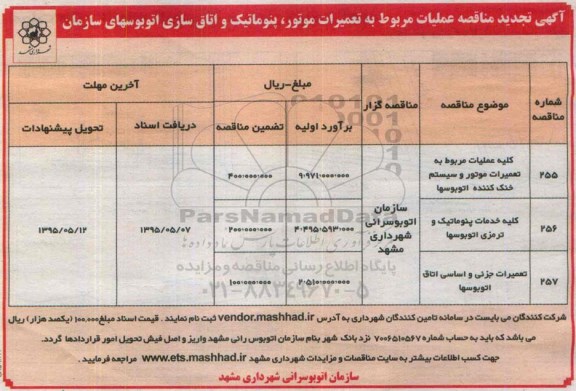 آگهی تجدید مناقصه عملیات مربوط به تعمیرات موتور، پنوماتیک و اتاق سازی اتوبوسهای سازمان
شماره مناقصه
موضوع مناقصه
مناقصه گزار
مبلغ-ریال
آخرین مهلت
برآورد اولیه
تضمین مناقصه
دریافت اسناد
تحویل پیشنهادات
۲۵۵
کلیه عملیات مربوط به
تعمیرات موتور و سیستم
خنک کننده اتوبوسها
۹۰۹۷۱۰۰۰۰۰۰۰
۴۰۰۰۰۰۰۰۰
سازمان
اتوبوسرانی
شهرداری
مشهد
۱۳۹۵/۰۵/۰۷
۱۳۹۵/۰۵/۱۲
۲۵۶
کلیه خدمات پنوماتیک و
ترمزی اتوبوسها
۲۰۴۹۵۰۵۹۳۰۰۰۰
۲۰۰۰۰۰۰۰۰
۲۵۷
تعمیرات جزئی و اساسی اتاق
اتوبوسها
۲۰۵۱۰۰۰۰۰۰۰۰
۱۰۰۰۰۰۰۰۰
ParsNamadData
پایگاه اطلاع رسانی مناقصه و مزایده
۰۲۱-۸۸۳۴۹۶۷۰-۵
شرکت کنندگان می بایست در سامانه تامین کنندگان شهرداری به آدرس vendor.mashhad.ir ثبت نام نمایند . قیمت اسناد مبلغ ۱۰۰،۰۰۰ (یکصد هزار) ریال
می باشد که باید به حساب شماره ۷۰۰۶۵۱۰۵۶۷ نزد بانک شهر بنام سازمان اتوبوس رانی مشهد واریز و اصل فیش تحویل امور قراردادها گردد.
جهت کسب اطلاعات بیشتر به سایت مناقصات و مزایدات شهرداری مشهد www.ets.mashhad.ir مراجعه فرمایید .
سازمان اتوبوسرانی شهرداری مشهد